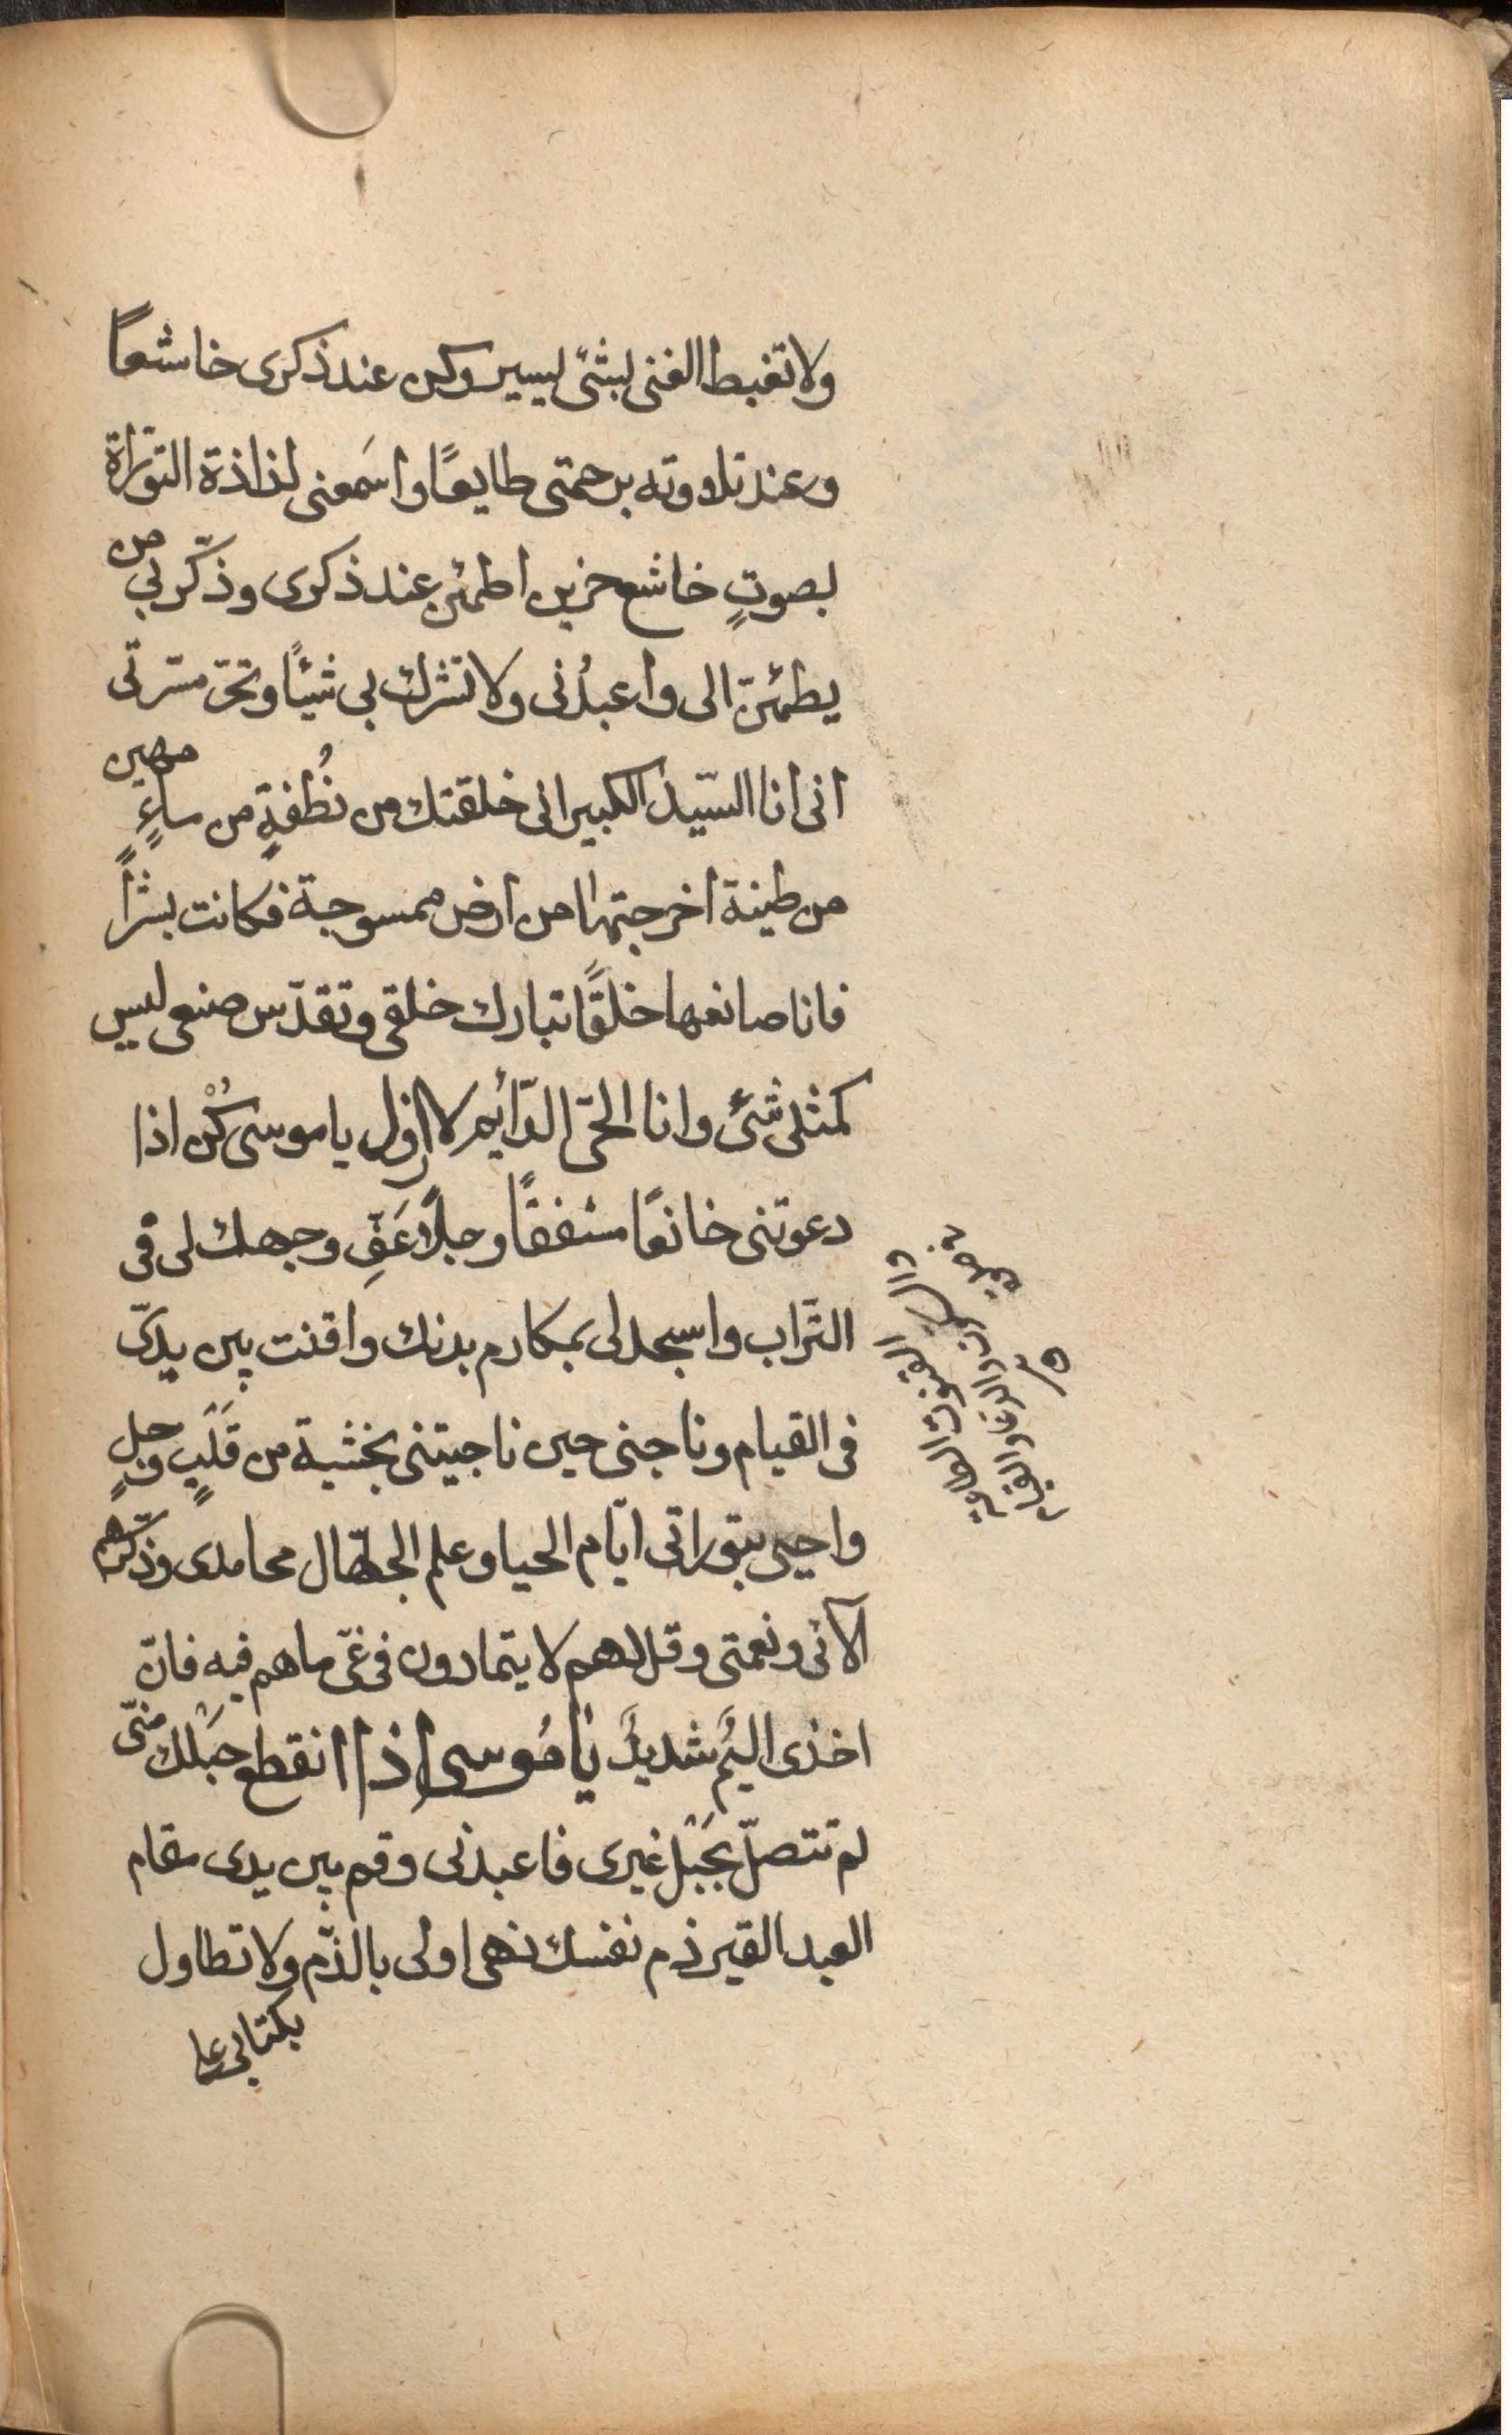 ولا تغبط الغنى بشئ يسير وكن عند ذكرى خاشعاً
وعند تلاوته برحمتى طايعًا واسَمعنى لذاذة التوراة
بصوتٍ خاشع حزين اطمئن عند ذكرى وذكّر بي من
يطمئنّ الى واعبدُنى ولا تشرك بى شيئًا وتحرّ مسّرتى
انى انا السّيد الكبير انى خلقتك من نُطفةٍ من ماءٍ مهين
من طينة اخرجتها من ارض ممسوجة فكانت بشراً
فانا صانعها خلقًا تبارك خلقى وتقدّس صنعى ليس
كمثلى شئ وانا الحىّ الدّائم لا ازول يا موسى كُنْ اذا
دعوتنى خائفًا مشفقًا وجلًا عَفّرِ وجهك لى فى
التّراب واسجد لى بمكارم بدنك واقنت بين يدىّ
فى القيام وناجنى حين ناجيتنى بخشية من قَلْبٍ وجلٍ
واحيى بتوراتى ايّام الحيا وعلم الجهّال محامدى وذكّرهم
آلائى ونعمتى وقل لهم لا يتمادون فى غىّ ما هم فيه فانّ
اخذى اليمٌ شديدٌ يا مُوسى اذا انقطع حَبْلك منّى
لم تتصلّ بحَبْل غيرى فاعبدنى وقم بين يدى مقام
العبد القير ذم نفسك فهى اولى بالذّم ولا تطاول
بكتابى على
القنوت الطاعة
والسكون والدعاء والقيام